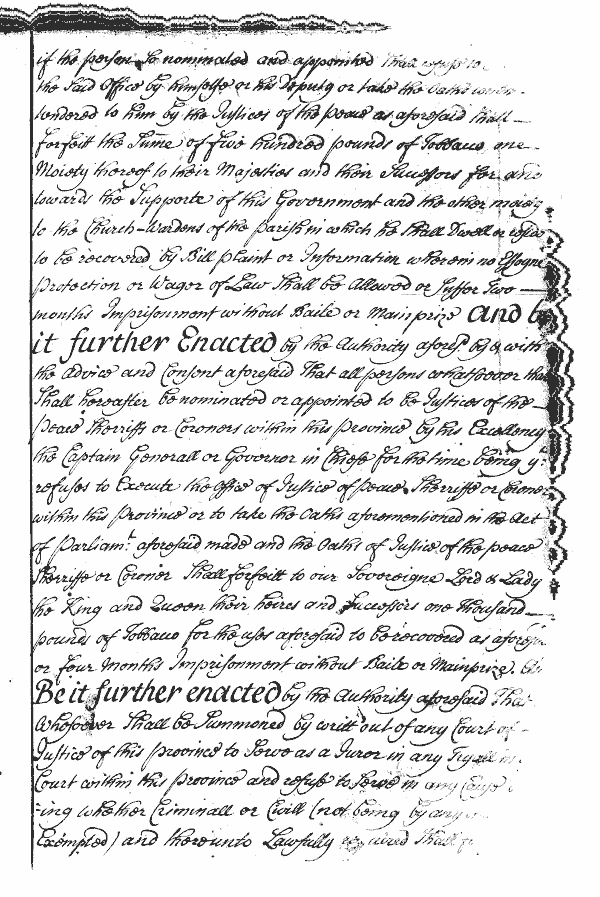 if the person So nominated and appointed Shall refuse to
the Said Office by himselfe or his Deputy or take the Oaths
tendered to him by the Justices of the peace as aforesaid Shall
forfeit the Sume of five hundred pounds of Tobbaco one
Moiety thereof to their Majesties and their Successors for and
towards the Supporte of this Government and the other moiety
to the Church-Wardens of the parish in which he Shall Dwell or
to be recovered by Bill plaint or Information wherein no Essoyne
protection or Wager of Law Shall be Allowed or Suffer Two
months Imprisonment without Baile or Mainprize And be
it further Enacted by the Authority aforesd. by & with
the Advice and Consent aforesaid That all persons whatsoever that
Shall hereafter be nominated or appointed to be Justices of the
peace Sherriffs or Coroners within this Province by his Excellency
the Captain Generall or Governor in Chiefe for the time being yt.
refuses to Execute the Office of Justice of peace Sherriffe or Coroner
within this Province or to take the Oaths aforementioned in the Act
of Parliamt. aforesaid made and the Oaths of Justice of the peace
Sherriffe or Coroner Shall forfeitt to our Sovereigne Lord & Lady
the King and Queen their heires and Successors one Thousand
pounds of Tobbaco for the uses aforesaid to be recovered as aforesd
or four Months Imprisonment without Baile or Mainprize.
Be it further enacted by the Authority aforesaid That
Whosoever Shall be Summoned by writt out of any Court of
Justice of this province to Serve as a Juror in any Tryall in
Court within this Province and refuse to Serve in any Cause
-ing whether Criminall or Civill (not being by any
Exempted) and thereunto Lawfully required Shall